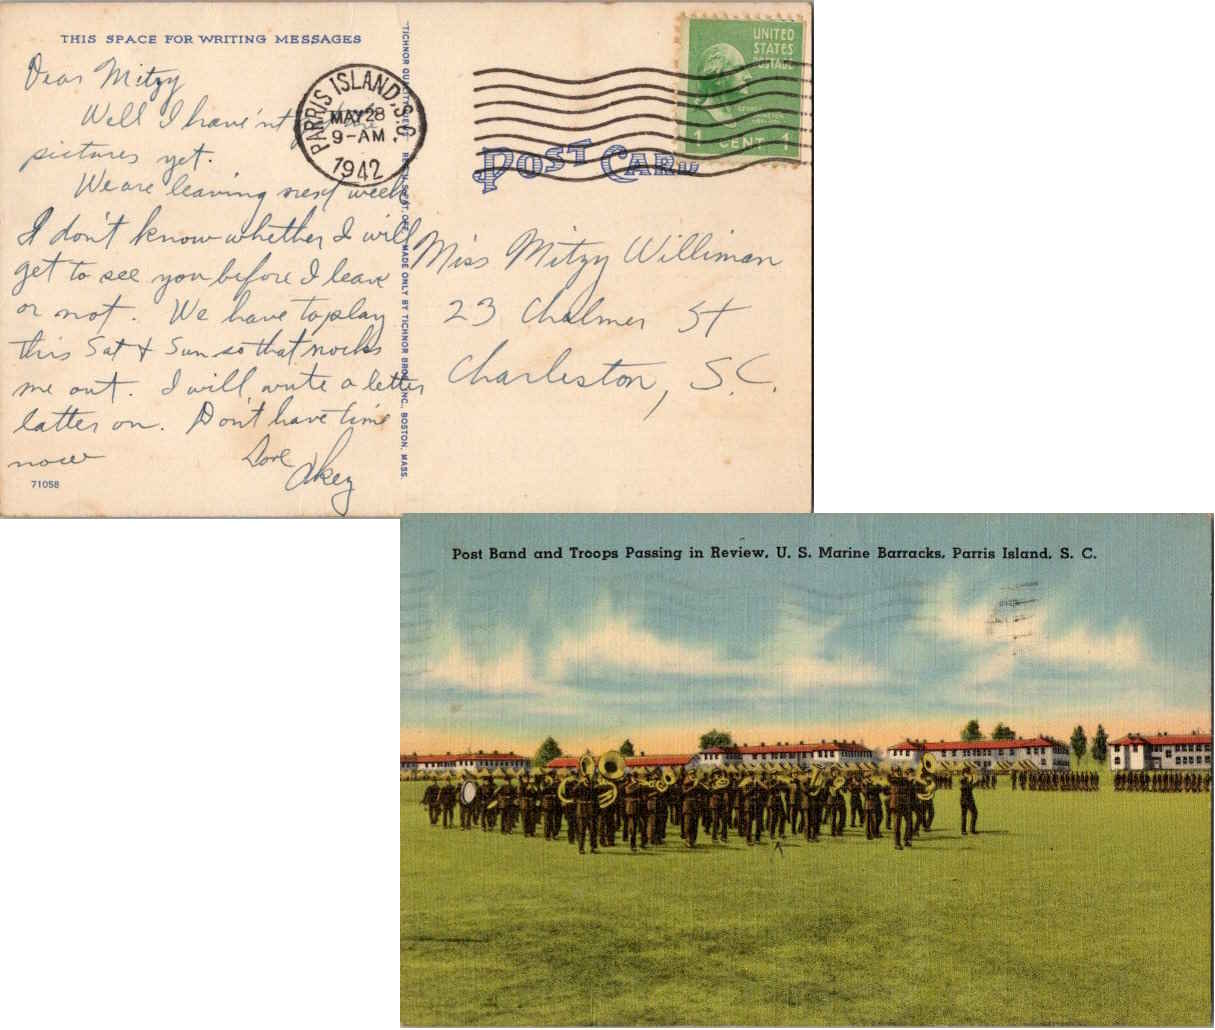 THIS SPACE FOR WRITING MESSAGES
Dear Mitzy
Well I have'nt
pictures yet.
We are leaving next week
I don't know whether I will
get to see you before I leave
or not. We have to play
this Sat & Sun so that nocks
me out. I will write a letter
latter on. Don't have time
now
Love
Akey
71058
MADE ONLY BY TICHNOR BROS., INC., BOSTON, MASS.
PARRIS ISLAND, S.C.
MAY 28
9-AM
1942
UNITED
STATES
POSTAGE
1 CENT 1
POST CARD
Miss Mitzy Williman
23 Chalmer St
Charleston, S.C.
Post Band and Troops Passing in Review, U. S. Marine Barracks, Parris Island, S. C.